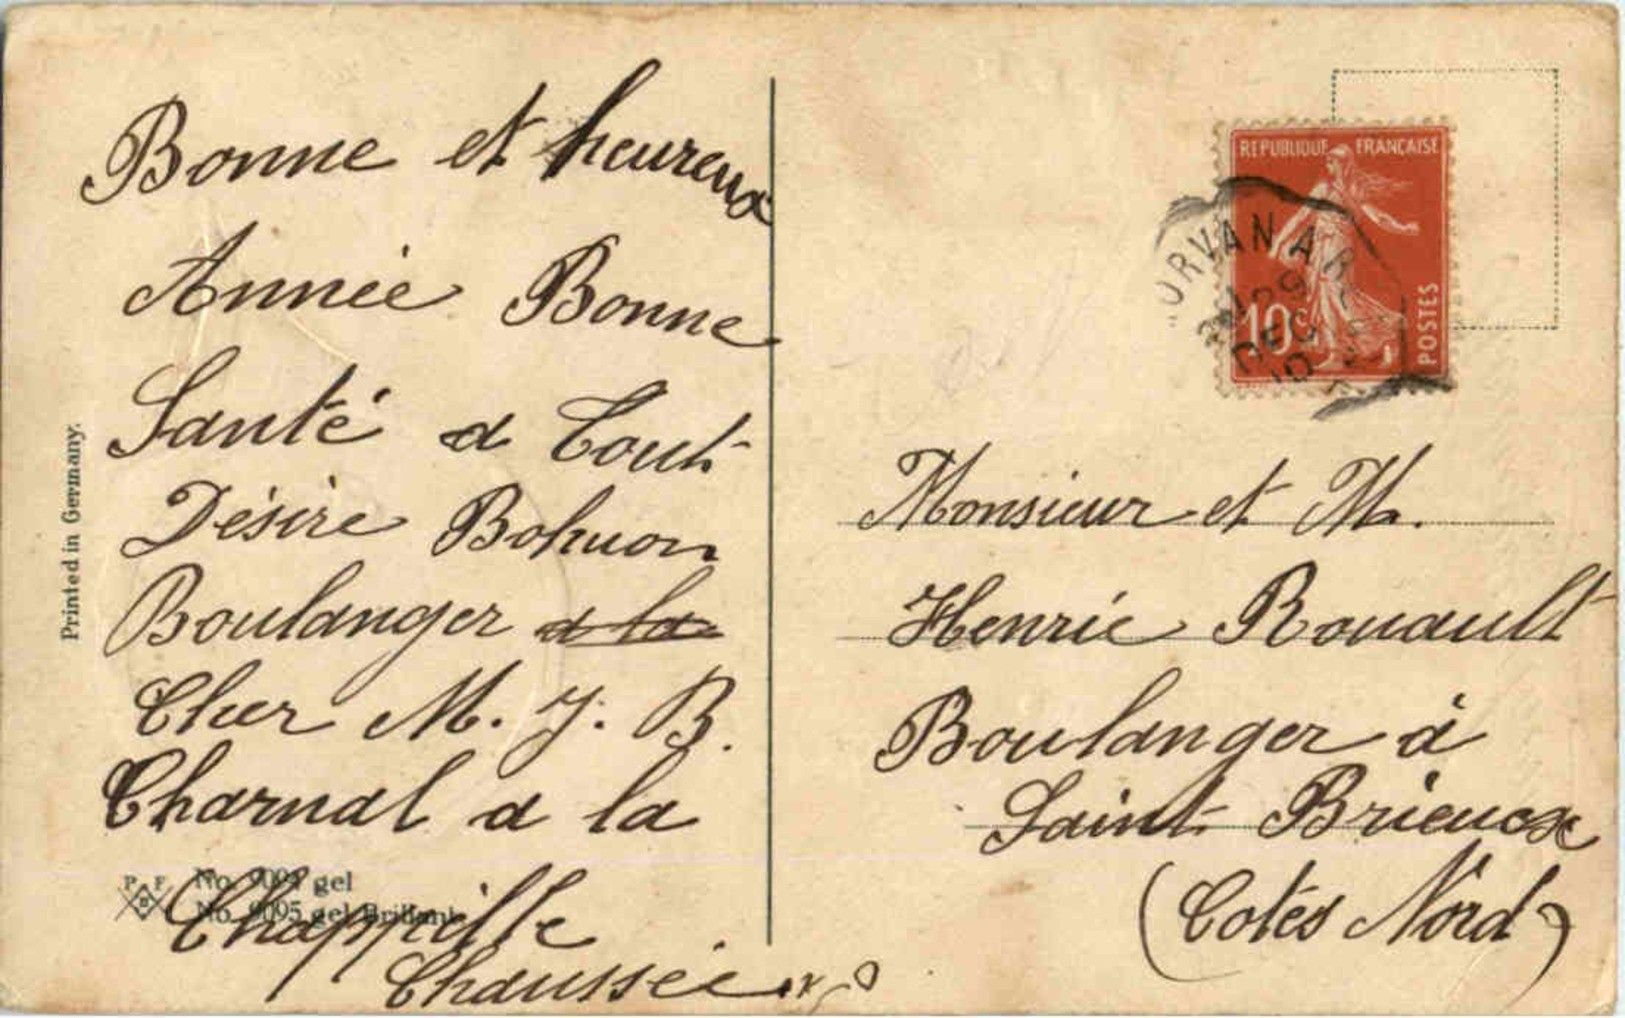 Bonne et heureux
Année Bonne
Santé a Tout
Désire Bohuon
Boulanger a la
Cher M. J. B.
Charnal a la
Chappelle
Chaussée
Printed in Germany.
P F B
No. 9094 gel
No. 9095 gel Brillant
REPUBLIQUE FRANÇAISE
10c
POSTES
DEC
10
Monsieur et M.
Henrie Rouault
Boulanger à
Saint Brieucx
(Cotés Nord)